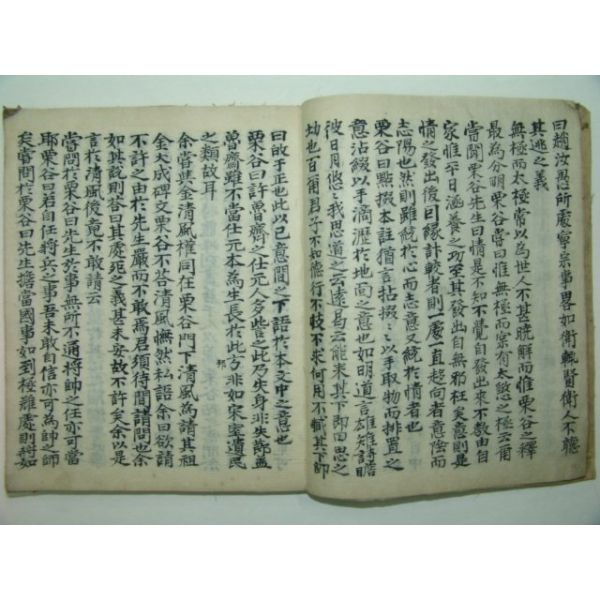 曰趙汝愚所處寧宗事畧如衛輒賢衛人不聽
其逃之義
無極而太極常以為世人不甚曉解而惟栗谷之釋
最為分明栗谷嘗曰惟無極而實有太煞之極云爾
嘗聞栗谷先生曰情是不知不覺自發出來不敎由自
家惟平日涵養之功至其發出自無邪枉矣意則是
情之發出後因緣計較者則一處直起向者意陰而
志陽也然則雖統於心而志意又統於情者也
栗谷曰點掇本註猶言拈掇以手取物而排置之
意沾綴以手滴瀝於地面之意也如明道言雄雉詩瞻
彼日月悠悠我思道之云遠曷云能來其下即曰思之
切也百爾君子不知德行不忮不求何用不臧其下即
曰故于正也此以己意間之下語於本文中之意也
栗谷曰許魯齋之仕元人多訾之此乃失身非失節盖
魯齋雖不當仕元本為生長於此方非如宋室遺民
之類故耳
余嘗與金清風權同在栗谷門下清風為請其祖
金大成碑文栗谷不答清風憮然私語余曰欲請
不許之由於先生嚴而不敢焉君須待間請問也余
如其說則答曰其處死之義甚未妥故不許矣余以是
言於清風後竟不敢請云
嘗問於栗谷曰先生於事無所不通將帥之任亦可當
耶栗谷曰若自任將兵之事吾未敢自信亦可為帥之師
矣嘗問於栗谷曰先生擔當國事如到極難處則將如